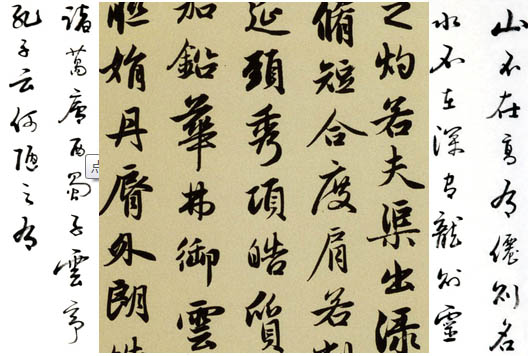 山不在高有僊則名
水不在深有龍則靈
之灼若夫渠出淥
脩短合度肩若
延頸秀項皓質
加鉛華弗御雲
聮娟丹脣外朗皓
諸葛廬西蜀子雲亭
孔子云何陋之有